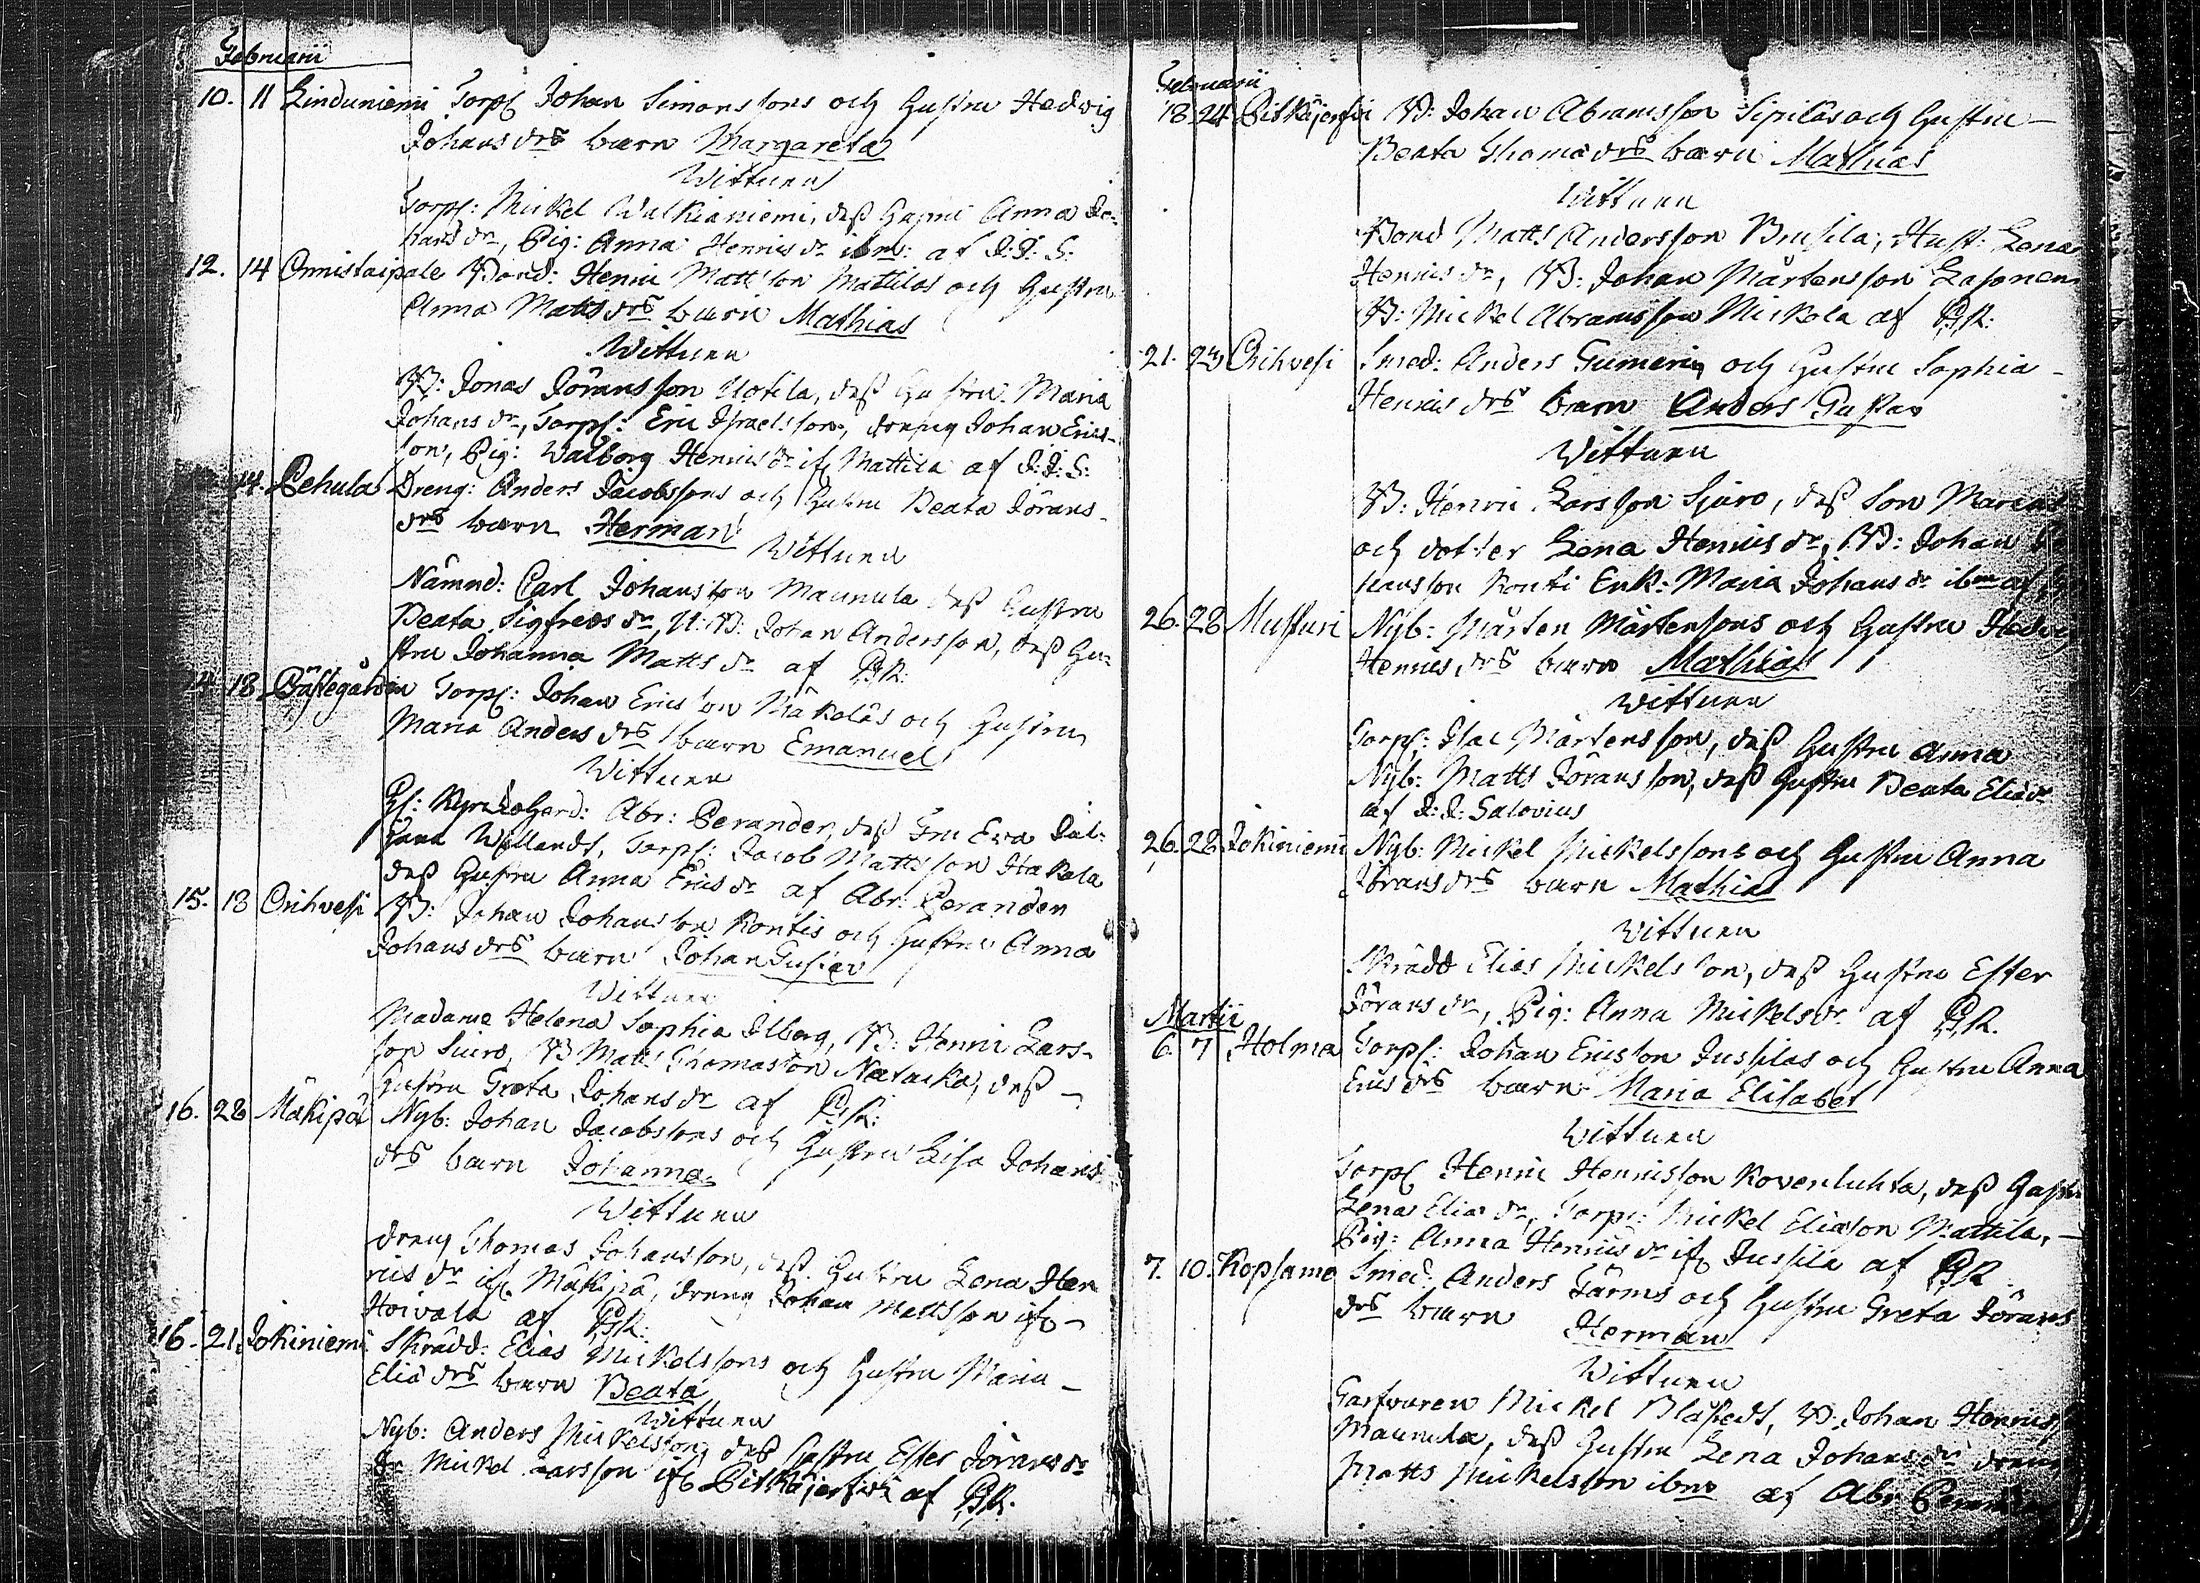 Februarii
10. 11 Linduniemi Torp: Johan Simonssons och Hustru Hedwig
Johans drs barn Margareta
Wittnen
Torp: Mickel Walkianiemi, dess Hustru Anna Jo-
hans dr, Pig: Anna Henrics dr ibm: af J: J: S:
12. 14 Onnistaipale Bond: Henric Mattsson Mattilas och Hustru
Anna Matts drs barn Mathias
Wittnen
B: Jonas Jöransson Uotila, dess Hustru Maria
Johans dr, Torp: Eric Israelsson, dreng Johan Erics-
son, Pig: Walborg Henrics dr if: Mattila af J: J: S:
14. Pehula Dreng: Anders Jacobssons och Hustru Beata Jörans-
drs barn Herman
Wittnen
Nämnd: Carl Johansson Maunula dess Hustru
Beata Sigfreds dr, U: B: Johan Andersson, dess Hu-
stru Johanna Matts dr af P: R:
14. 18 Prästegården Torp: Johan Ericsson Mäkeläs och Hustru
Maria Anders drs barn Emanuel
Wittnen
Abr: Perander, dess Fru Eva
Torp: Jacob Mattsson Hakola
dess Hustru Anna Erics dr af Abr: Perander
15. 18 Orihvesi B: Johan Johansson Kontis och Hustru Anna
Johans drs barn Johan Gustav
Wittnen
Madame Helena Sophia Ilberg, B: Henric Lars-
son Siuro, B: Matts Thomasson dess
Hustru Greta Johans dr af P: R:
16. 28 Mäkipä Nyb: Johan Jacobssons och Hustru Lisa Johans
drs barn Johanna
Wittnen
Dreng Thomas Johansson, dess Hustru Lena Hen
rics dr if: Mäkipä, dreng Johan Mattsson if:
Hoivala af P: R:
16. 21. Jokiniemi Skrädd: Elias Mickelssons och Hustru Maria
Eliä drs barn Beata
Wittnen
Nyb: Anders Mickelsson, dess Hustru Ester Jörans dr
Mickel Larsson if: Pitkäjerfvi af P: R:
Februarii
18. 24. Pitkäjerfvi B: Johan Abramsson Sipiläs och Hustru
Beata Thomä drs barn Mathias
Wittnen
Bond Matts Andersson Brusila, Hust: Lena
Henrics dr, B: Johan Mårtensson Lasonen
B: Mickel Abramsson Mickola af P: R:
21. 23 Orihvesi Smed: Anders Gumerin och Hustru Sophia
Henrics drs barn Anders Gustav
Wittnen
B: Henric Larsson Sjuro, dess Son Marcus
och dotter Lena Henrics dr, B: Johan Jo
hansson Konti Enk: Maria Johans dr ibm af
26. 28 Mussuri Nyb: Mårten Mårtensons och Hustru Hedvig
Henrics drs barn Mathias
Wittnen
Torp: Isac Mårtensson, dess Hustru Anna
Nyb: Matts Jöransson, dess Hustru Beata Eliä dr
af J: J: Salovius
26. 28 Jokiniemi Nyb: Mickel Mickelssons och Hustru Anna
Jörans drs barn Mathias
Wittnen
Skrädd Elias Mickelsson, dess Hustru Ester
Jörans dr, Pig: Anna Mickels dr af P: R.
Martii
6. 7 Holma Torp: Johan Ericsson Jussilas och Hustru Anna
Erics drs barn Maria Elisabet
Wittnen
Torp Henric Henricsson Kovenluhta, dess Hustru
Lena Eliæ dr, Torp: Mickel Eliasson Mattila,
Pig: Anna Henrics dr if: Jussila af P: R
7. 10. Kopsamo Smed: Anders Färms och Hustru Greta Jörans
drs barn Herman
Wittnen
Garfvaren Mickel Blåfjedt, B: Johan Henricss
Maunula, dess Hustru Lena Johans dr dreng
Matts Mickelsson ibm af Abr Perander